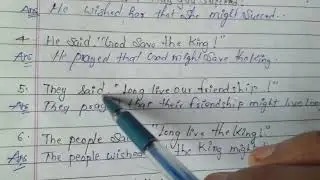 He wished her that she might succeed..
4. He said. "God save the King!"
Ans He prayed that God might save the king.
5. They said, "Long live our friendship!"
Ans They that their friendship might live long
6. The people "Long live the King!"
Ans The people wished the King might